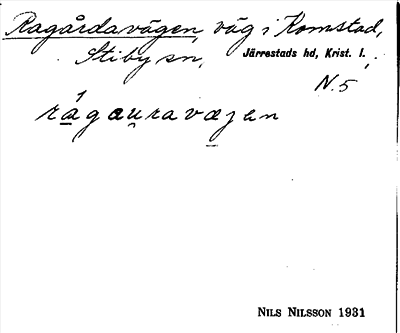 Ragårdavägen, väg i Komstad,
Stiby sn, Järrestads hd, Krist. l.
N. 5
rágauravæjen
NILS NILSSON 1931